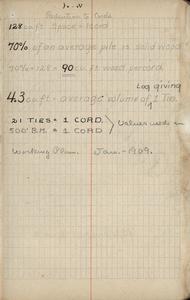 Reduction to Cords
128 cu.ft. space = 1 cord
70% of an average pile is solid wood
70% × 128 = 90 cu. ft. wood per cord
Log giving
4.3 cu ft - average volume of 1 Tie.
21 TIES = 1 CORD.
500' B.M. = 1 CORD
Values used in
Working Plan. Jan. - 1909.